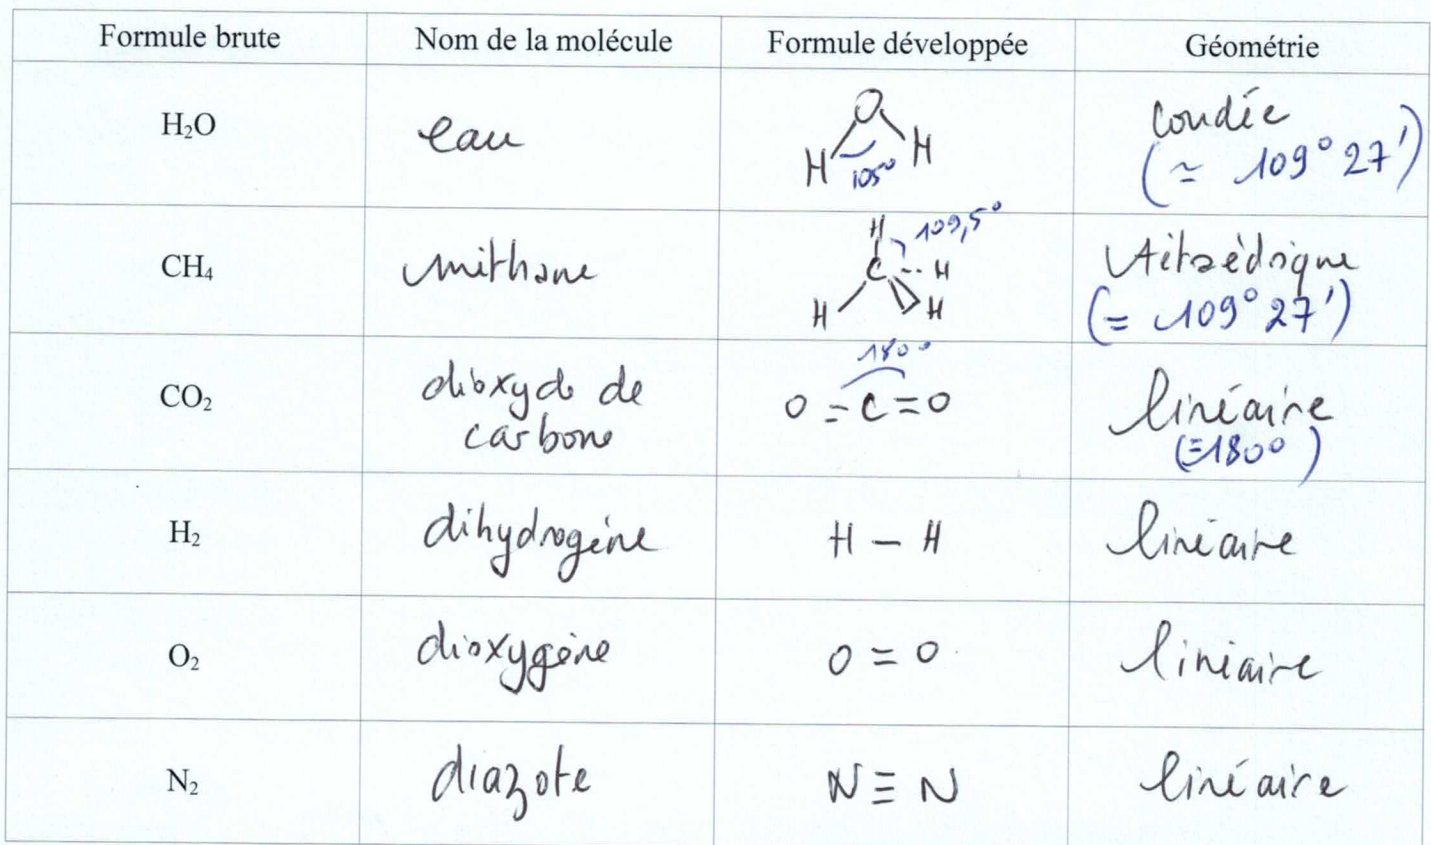 Formule brute Nom de la molécule Formule développée Géométrie
H₂O eau O H H 105° coudée (≃ 109° 27')
CH₄ méthane H 109,5° C H H H tétraédrique (= 109° 27')
CO₂ dioxyde de carbone 180° O = C = O linéaire (=180°)
H₂ dihydrogène H – H linéaire
O₂ dioxygène O = O linéaire
N₂ diazote N ≡ N linéaire